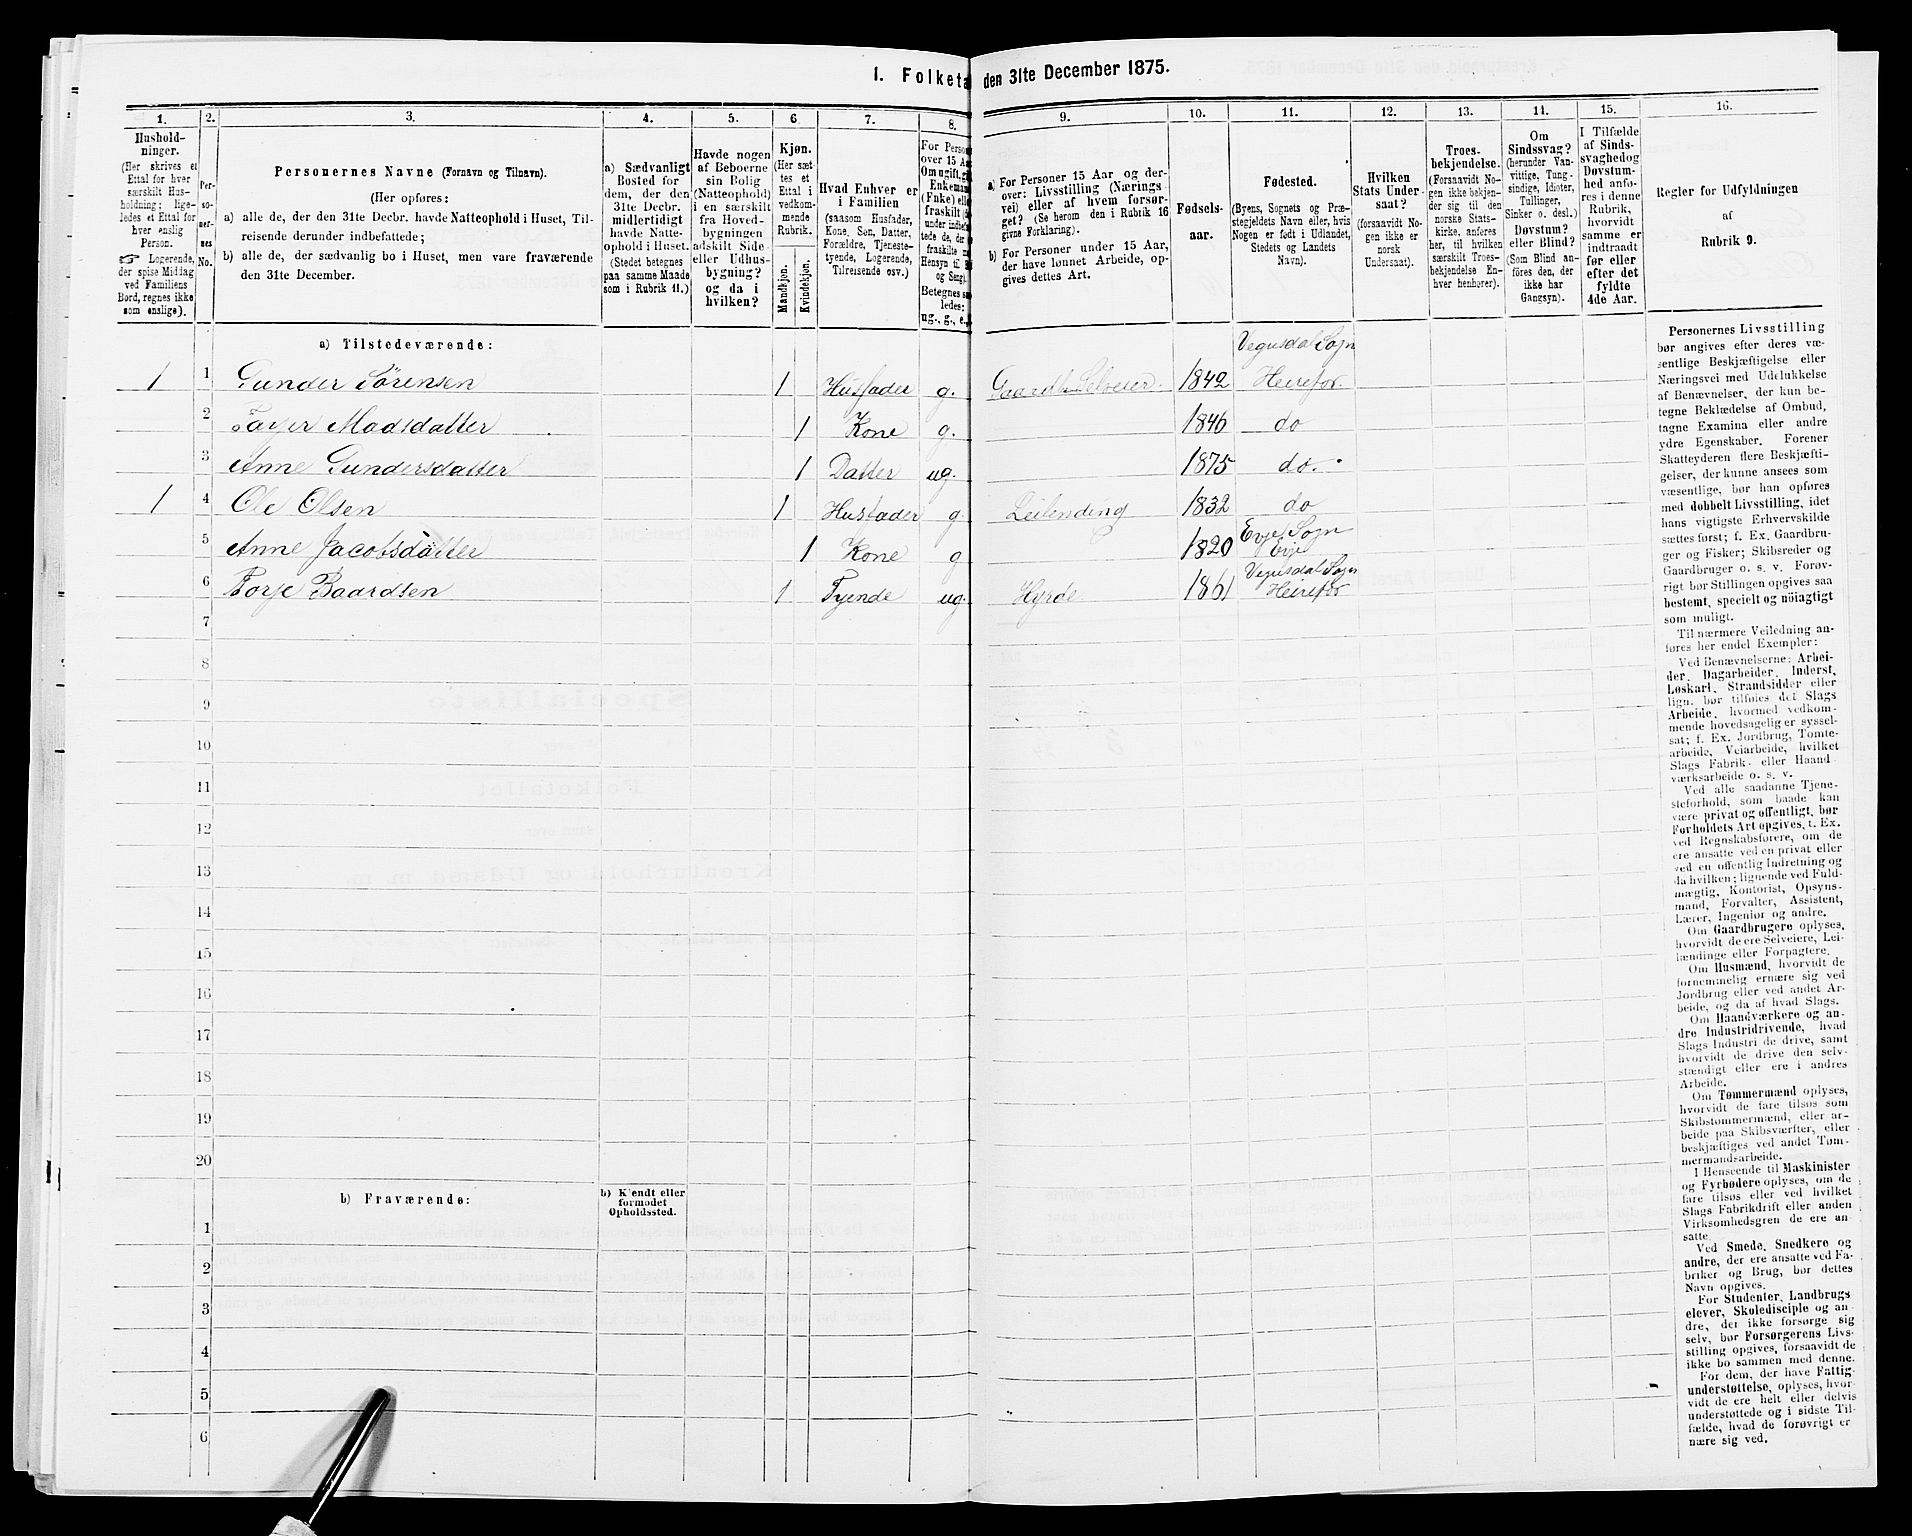 1. Folketa den 31te December 1875.
1.
Hushold-
ninger.
(Her skrives et
Ettal for hver
særskilt Hus-
holdning; lige-
ledes et Ettal for
hver enslig
Person.
☞ Logerende,
der spise Middag
ved Familiens
Bord, regnes ikke
som enslige).
2.
Per-
so-
ner-
nes
No.
3.
Personernes Navne (Fornavn og Tilnavn).
(Her opføres:
a) alle de, der den 31te Decbr. havde Natteophold i Huset, Til-
reisende derunder indbefattede;
b) alle de, der sædvanlig bo i Huset, men vare fraværende
den 31te December.
4.
a) Sædvanligt
Bosted for
dem, der den
31te Decbr.
midlertidigt
havde Natte-
ophold i Huset.
(Stedet betegnes
paa samme Maade
som i Rubrik 11.)
5.
Havde nogen
af Beboerne
sin Bolig
(Natteophold)
i en særskilt
fra Hoved-
bygningen
adskilt Side-
eller Udhus-
bygning?
og da i
hvilken?
6.
Kjøn.
(Her sæt-
tes et
Ettal i
vedkom-
mende
Rubrik.
Mandkjøn.
Kvindekjøn.
7.
Hvad Enhver er
i Familien
(saasom Husfader,
Kone, Søn, Datter,
Forældre, Tjeneste-
tyende, Logerende,
Tilreisende osv.).
8.
For Person
over 15 Aa
Om ugift, gi
Enkeman
(Enke) elle
fraskilt
under indbef
tede de, de
fraskilte
Hensyn til B
og Seng).
Betegnes sa
ledes:
ug., g., e.,
9.
a) For Personer 15 Aar og der-
over: Livsstilling (Nærings-
vei) eller af hvem forsør-
get? (Se herom den i Rubrik 16
givne Forklaring).
b) For Personer under 15 Aar,
der have lønnet Arbeide, op-
gives dettes Art.
10.
Fødsels-
aar.
11.
Fødested.
(Byens, Sognets og Præ-
stegjeldets Navn eller, hvis
Nogen er født i Udlandet,
Stedets og Landets
Navn).
12.
Hvilken
Stats Under-
saat?
(forsaavidt No-
gen ikke er
norsk
Undersaat).
13.
Troes-
bekjendelse.
(Forsaavidt No-
gen ikke bekjen-
der sig til den
norske Stats-
kirke, anføres
her, til hvilken
særskilt Troes-
bekjendelse En-
hver henhører).
14.
Om
Sindssvag?
(herunder Van-
vittige, Tung-
sindige, Idioter,
Tullinger,
Sinker o. desl.)
Døvstum?
eller Blind?
(Som Blind an-
føres den, der
ikke har
Gangsyn).
15.
I Tilfælde
af Sinds-
svaghed og
Døvstum-
hed anfø-
res i denne
Rubrik,
hvorvidt
samme er
indtraadt
før eller
efter det
fyldte
4de Aar.
16.
Regler for Udfyldningen
af
Rubrik 9.
a) Tilstedeværende:
Vegusdal Sogn
1 1 Gunder Sørensen 1 Husfader g. Gaardb. Selveier. 1842 Heirefor.
2 Tayer Madsdatter 1 Kone g. 1846 do
3 Anne Gundersdatter 1 Datter ug. 1875 do.
1 4 Ole Olsen 1 Husfader g. Leilending 1832 do
Evje Sogn
5 Anne Jacobsdatter 1 Kone g 1820 Evje
Vegusdal Sogn
6 Torje Baardsen 1 Tyende ug. Hyrde. 1861 Heirefor
7
8
9
10
11
12
13
14
15
16
17
18
19
20
b) Fraværende:
b) Kjendt eller
formodet
Opholdssted.
1
2
3
4
5
6
Personernes Livsstilling
bør angives efter deres væ-
sentlige Beskjæftigelse eller
Næringsvei med Udelukkelse
af Benævnelser, der kun be-
tegne Beklædelse af Ombud,
tagne Examina eller andre
ydre Egenskaber. Forener
Skatteyderen flere Beskjæfti-
gelser, der kunne ansees som
væsentlige, bør han opføres
med dobbelt Livsstilling, idet
hans vigtigste Erhvervskilde
sættes først; f. Ex. Gaardbru-
ger og Fisker; Skibsreder og
Gaardbruger o. s. v. Forøv-
rigt bør Stillingen opgives saa
bestemt, specielt og nøiagtigt
som muligt.
Til nærmere Veiledning an-
føres her endel Exempler:
Ved Benævnelserne: Arbei-
der, Dagarbeider, Inderst,
Løskarl, Strandsidder eller
lign. bør tilføies det Slags
Arbeide, hvormed vedkom-
mende hovedsagelig er syssel-
sat; f. Ex. Jordbrug, Tomte-
arbeide, Veiarbeide, hvilket
Slags Fabrik- eller Haand-
værksarbeide o. s. v.
Ved alle saadanne Tjene-
steforhold, som baade kan
være privat og offentligt, bør
Forholdets Art opgives, t. Ex.
ved Regnskabsførere, om de
ere ansatte ved en privat eller
ved en offentlig Indretning og
da hvilken; lignende ved Fuld-
mægtig, Kontorist, Opsyns-
mand, Forvalter, Assistent,
Lærer, Ingeniør og andre.
Om Gaardbrugere oplyses,
hvorvidt de ere Selveiere, Lei-
lændinge eller Forpagtere.
Om Husmænd, hvorvidt de
fornemmelig ernære sig ved
Jordbrug eller ved andet Ar-
beide, og da af hvad Slags.
Om Haandværkere og an-
dre Industridrivende, hvad
Slags Industri de drive, samt
hvorvidt de drive den selv-
stændigt eller ere i andres
Arbeide.
Om Tømmermænd oplyses,
hvorvidt de fare tilsøs som
Skibstømmermænd, eller ar-
beide paa Skibsværfter, eller
beskjæftiges ved andet Tøm-
mermandsarbeide.
I Henseende til Maskinister
og Fyrbødere oplyses, om de
fare tilsøs eller ved hvilket
Slags Fabrikdrift eller anden
Virksomhedsgren de ere an-
satte.
Ved Smede, Snedkere og
andre, der ere ansatte ved Fa-
briker og Brug, bør dettes
Navn opgives.
For Studenter, Landbrugs
elever, Skoledisciple og an-
dre, der ikke forsørge sig
selv, bør Forsørgerens Livs-
stilling opgives, forsaavidt de
ikke bo sammen med denne.
For dem, der have Fattig-
understøttelse, oplyses, hvor-
vidt de ere helt eller delvis
understøttede og i sidste Til-
fælde, hvad de forøvrigt er
nære sig ved.